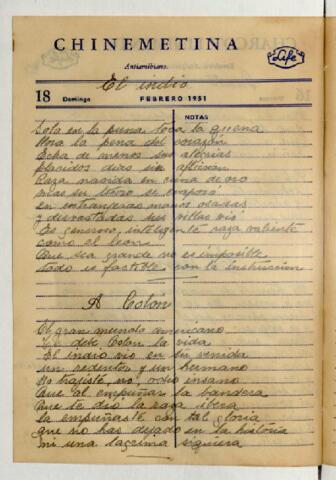 CHINEMETINA
Antiamibiano.
Life
El indio
18 Domingo FEBRERO 1951
NOTAS
Solo en la puna toca la quena
llora la pena del corazón
Echa de menos sus alegrías
placidos dias sin aflicion
Raza nacida en cuna de oro
mas su lloro se evaporó
en extranjeras manos osadas
y devastadas sus villas vió
Es generoso, inteligente raza valiente
como el leon
Que sea grande no es imposible
todo es factible con la instruccion
A Colón
El gran mundo americano
te debe Colon la vida
El indio vio en tu venida
un redentor y un hermano
No trajiste, no, odio insano
Que al empuñar la bandera
Que te dio la raza ibera
la empuñaste con tal gloria
que no has dejado en la historia
ni una lagrima siquiera